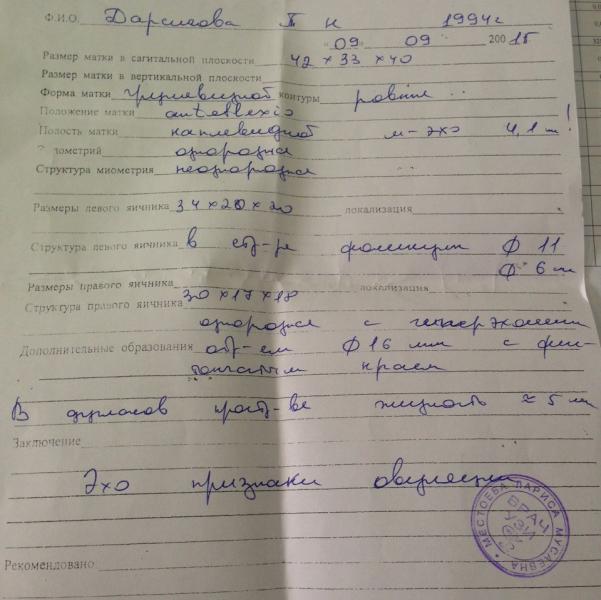 Ф.И.О. Дарсигова П н 1994г
"09" 09 200 15
Размер матки в сагитальной плоскости 42 × 33 × 40
Размер матки в вертикальной плоскости
Форма матки грушевидной контуры ровные
Положение матки anteflexio
Полость матки каплевидной м-эхо 4,1 !
дометрий однородна
Структура миометрия неоднородна
Размеры левого яичника 34 × 20 × 20 локализация
Структура левого яичника в стр-ре фолликул Ф 11
Ф 6
Размеры правого яичника 30 × 17 × 18 локализация
Структура правого яичника
однородна с гиперэхоген
Дополнительные образования обр-ем Ф 16 мм с фес-
тончатым краем
В дугласов прост-ве жидкость ≈ 5 мл
Заключение
Эхо признаки овуляции
МЕСТОЕВА ЛАРИСА МУСАЕВНА
ВРАЧ
УЗИ
Рекомендовано